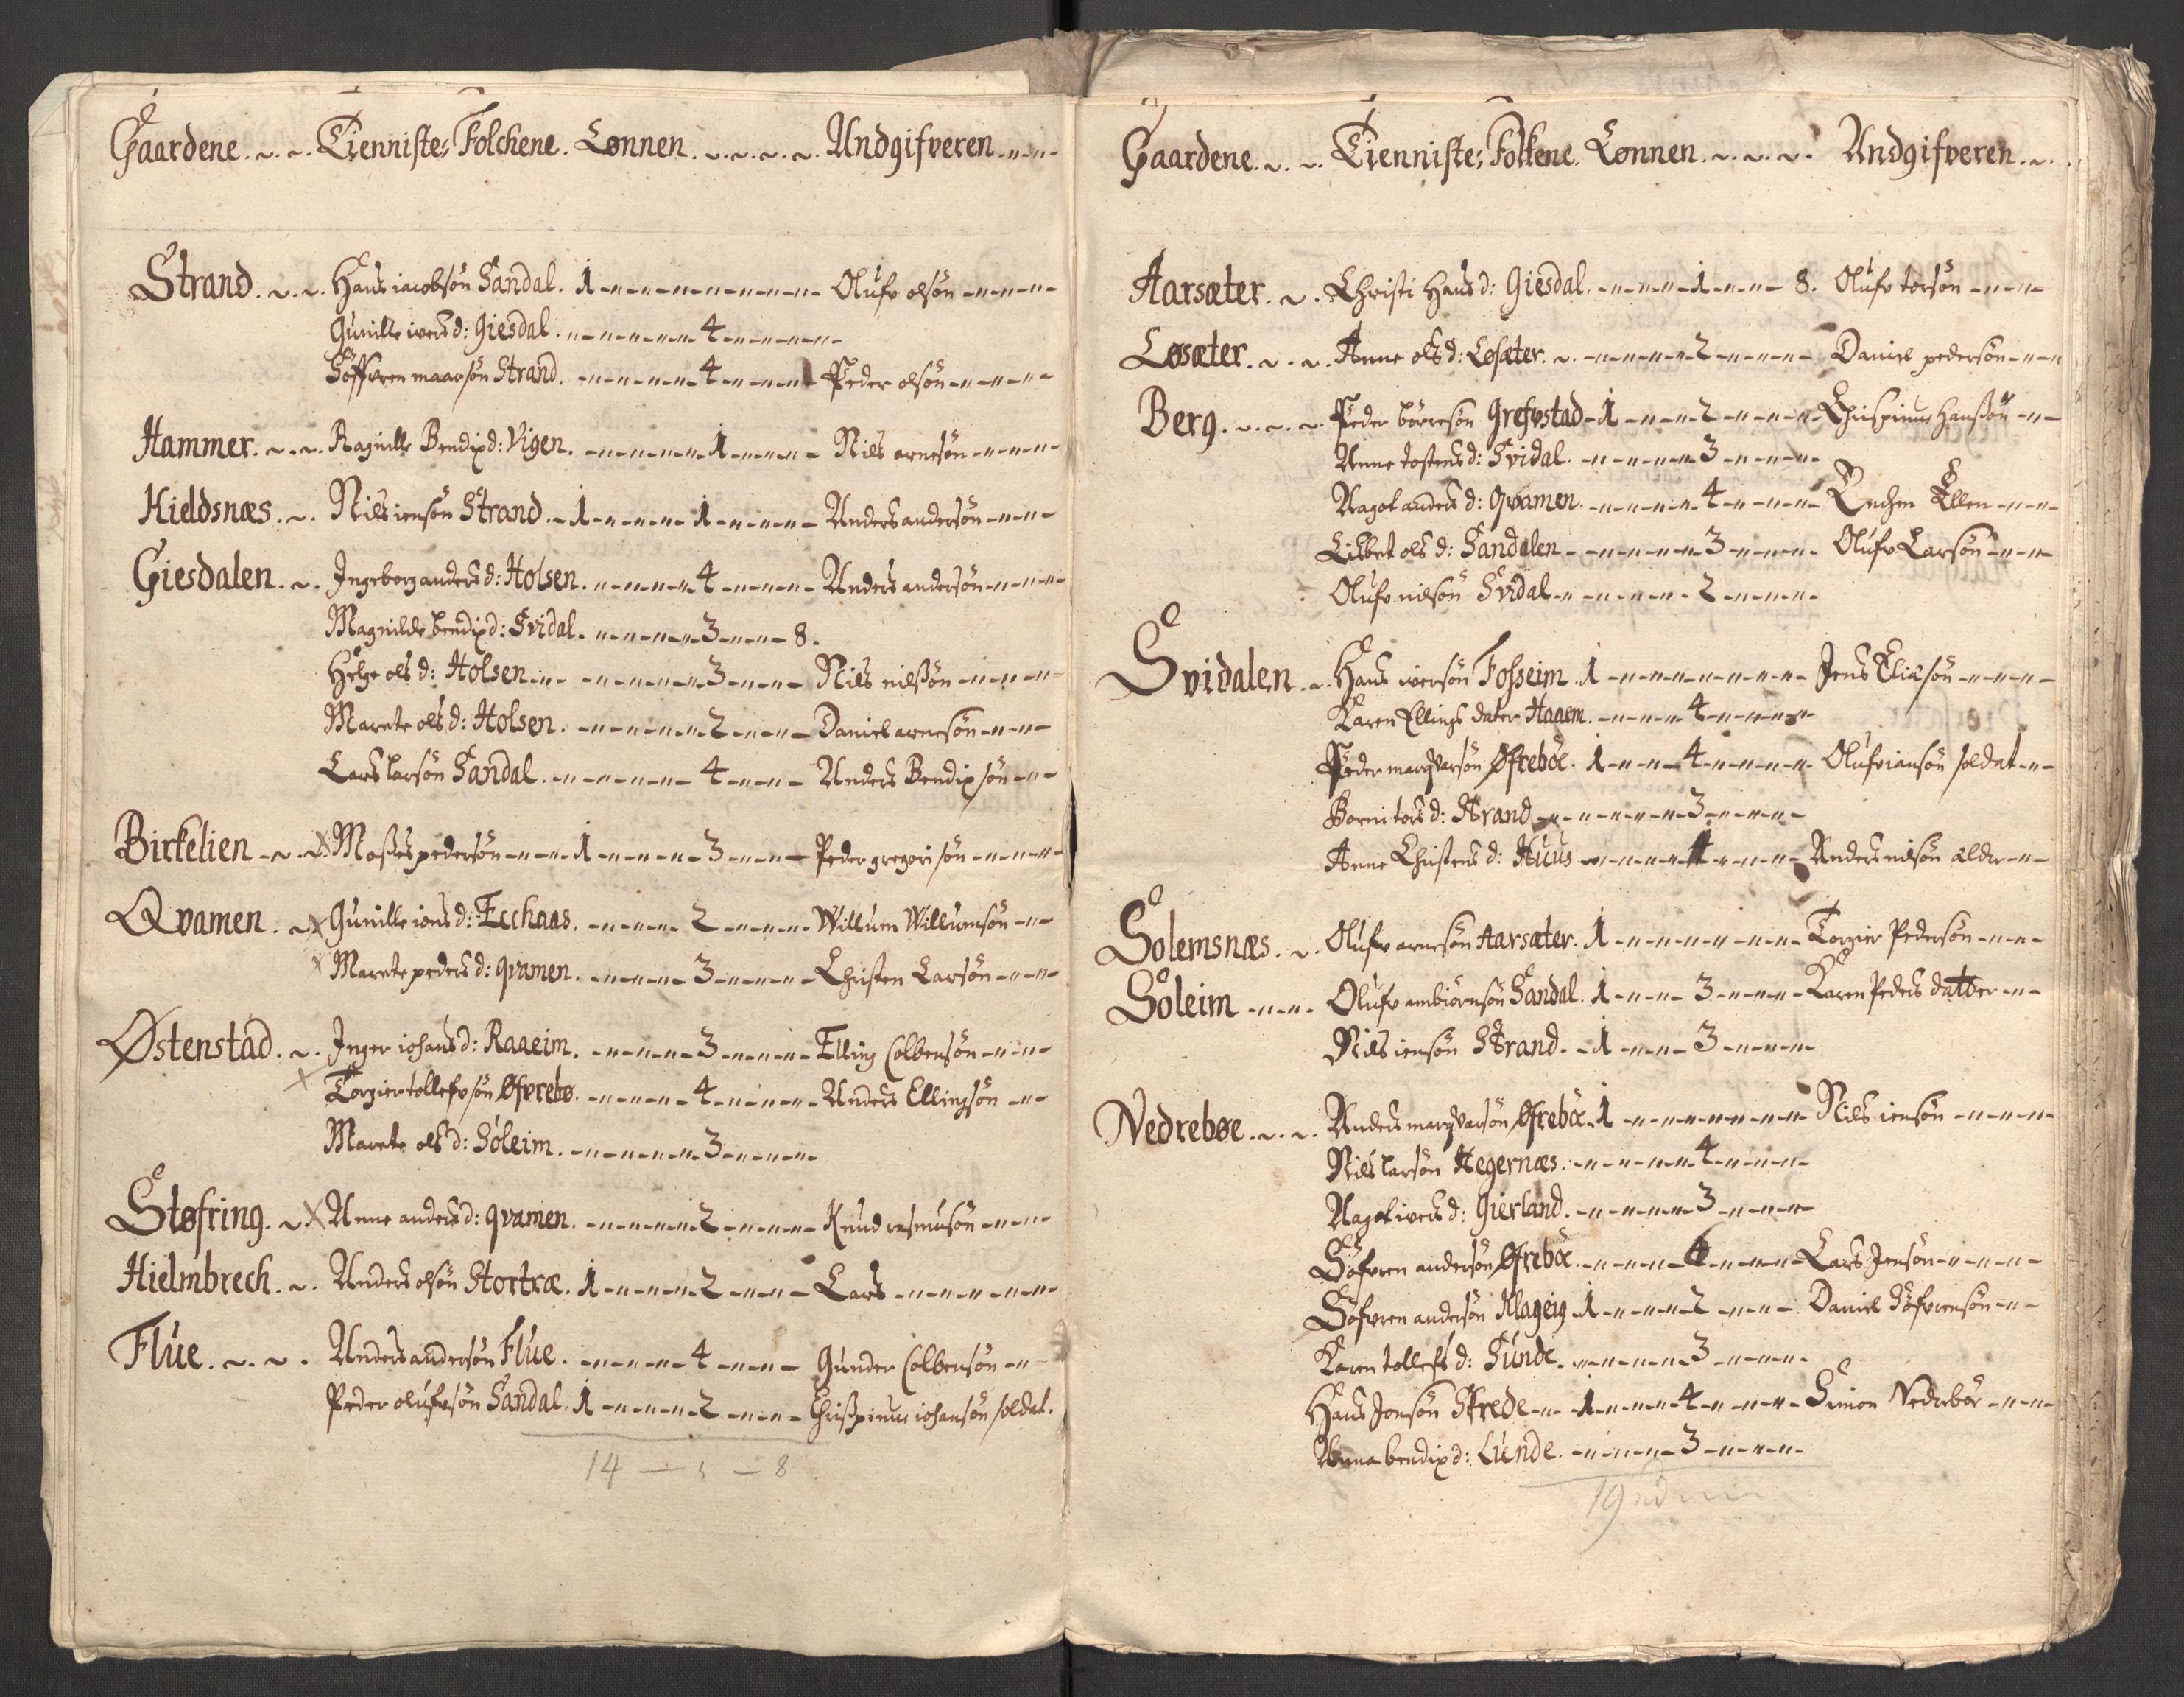 Gaardene. Tienniste, Folchene. Lønnen. Undgifveren
Strand. Hans iacobsøn Sandal. 1 Olufv olsøn
Gunille ivers d: Giesdal. 4
Søffren maarsøn Strand. 4 Peder olsøn
Hammer. Ragnille Bendix d: Vigen. 1 Nils arnesøn
Kieldsnæs. Nils iensøn Strand. 1 1 Anders andersøn
Giesdalen. Ingeborg anders d: Holsen. 4 Anders andersøn
Magnilde bendix d: Svidal. 3 8.
Helge ols d: Holsen 3 Nils nilssøn
Marete ols d: Holsen. 2 Daniel arnesøn
Lars larsøn Sandal. 4 Anders Bendixsøn
Birkelien x Mosses pedersøn 1 3 Peder gregorisøn
Qvamen. x Gunille iens d: Ecchaas. 2 Willum Willumsøn
x Marete peders d: qvamen. 3 Christen Larsøn
Østenstad. Inger iohans d: Raaeim. 3 Elling Colbensøn
x Torgier tollefvsøn Øfvrebø. 4 Anders Ellingsøn
Marete ols d: Søleim. 3
Støfring. x Anne anders d: qvamen. 2 Knud rasmusøn
Hielmbrech. Anders olsøn Stortræ. 1 2 Lars
Flue. Anders andersøn Flue. 4 Gunder Colbensøn
Peder olufsøn Sandal. 1 2 Chrispinus iohansøn soldat.
14 — — 8
Gaardene. Tienniste, Folkene. Lønnen. Undgifveren.
Aarsæter. Christi Hans d: Giesdal. 1 8. Olufv torsøn
Løsæter. Anne ols d: Løsæter. 2 Daniel pedersøn
Berg. Peder børresøn Grefvstad 1 2 Chrispinus Hanssøn
Anne tostens d: Svidal. 3
Aagot anders d: qvamen. 4 Enchen Ellen
Lisbet ols d: Sandalen 3 Olufv Larsøn
Olufv nilsøn Svidal 2
Svidalen. Hans iversøn Fosseim. 1 Jens Eliasøn
Karen Ellings dater Haaem. 4
Peder marqvarsøn Øfrebøe. 1 4 Olufv iansøn soldat
Borni tors d: Strand 3
Anne Christens d: Huus 4 Anders nilsøn elder
Solemsnæs. Olufv arnesøn Aarsæter. 1 Torgier Pedersøn
Søleim Olufv ambiørnsøn Sandal. 1 3 Karen Peders datter
Nils iensøn Strand. 1 3
Nedrebøe. Anders marqvarsøn Øfrebøe. 1 Nils iensøn
Nils larsøn Hegernæs. 4
Aagot ivers d: Gierland. 3
Søfvren andersøn Øfrebøe. 4 Lars Jensøn
Søfvren andersøn Klageig 1 2 Daniel Søfvrensøn
Karen tollefs d: Sunde. 3
Hans Jonsøn Strede 1 4 Simon Nedrebøe
Anna bendix d: Lunde. 3
19